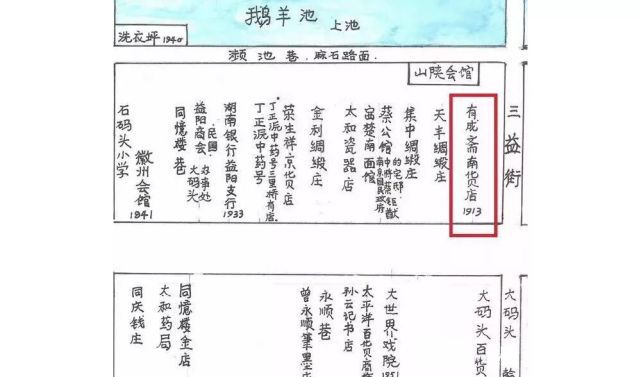 鹅羊池 上池
洗衣坪 1940
濒池巷.麻石路面.
山陕会馆
三益街
有成斋南货店 1913
天丰绸缎庄
集中绸缎庄
蔡公馆
富楚南面馆
太和瓷器店
金利绸缎庄
荣生祥京货店
丁正派中药号
湖南银行益阳支行 1933
民国
益阳商会
办事处
大码头
同憶楼巷
徽州会馆 1841
石码头小学
大码头
大码头百货
大世界戏院
太平洋百货商
孙云记书店
永顺巷
曾永顺笔墨店
同憶楼金店
太和药局
同庆钱庄